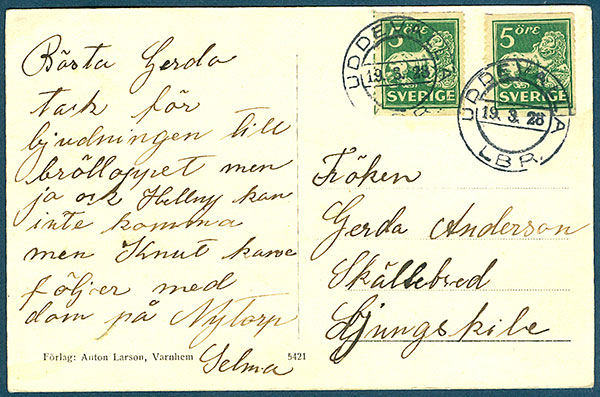 Bästa Gerda
tack för
bjudningen till
brölloppet men
ja och Hellny kan
inte komma
men Knut kane
följer med
dom på Nytorp
Selma
Förlag: Anton Larson, Varnhem
5421
5 ÖRE
SVERIGE
5 ÖRE
SVERIGE
UDDEVALLA
19. 3. 28
LBR.
UDDEVALLA
19. 3. 28
LBR.
Fröken
Gerda Anderson
Skällebred
Ljungskile